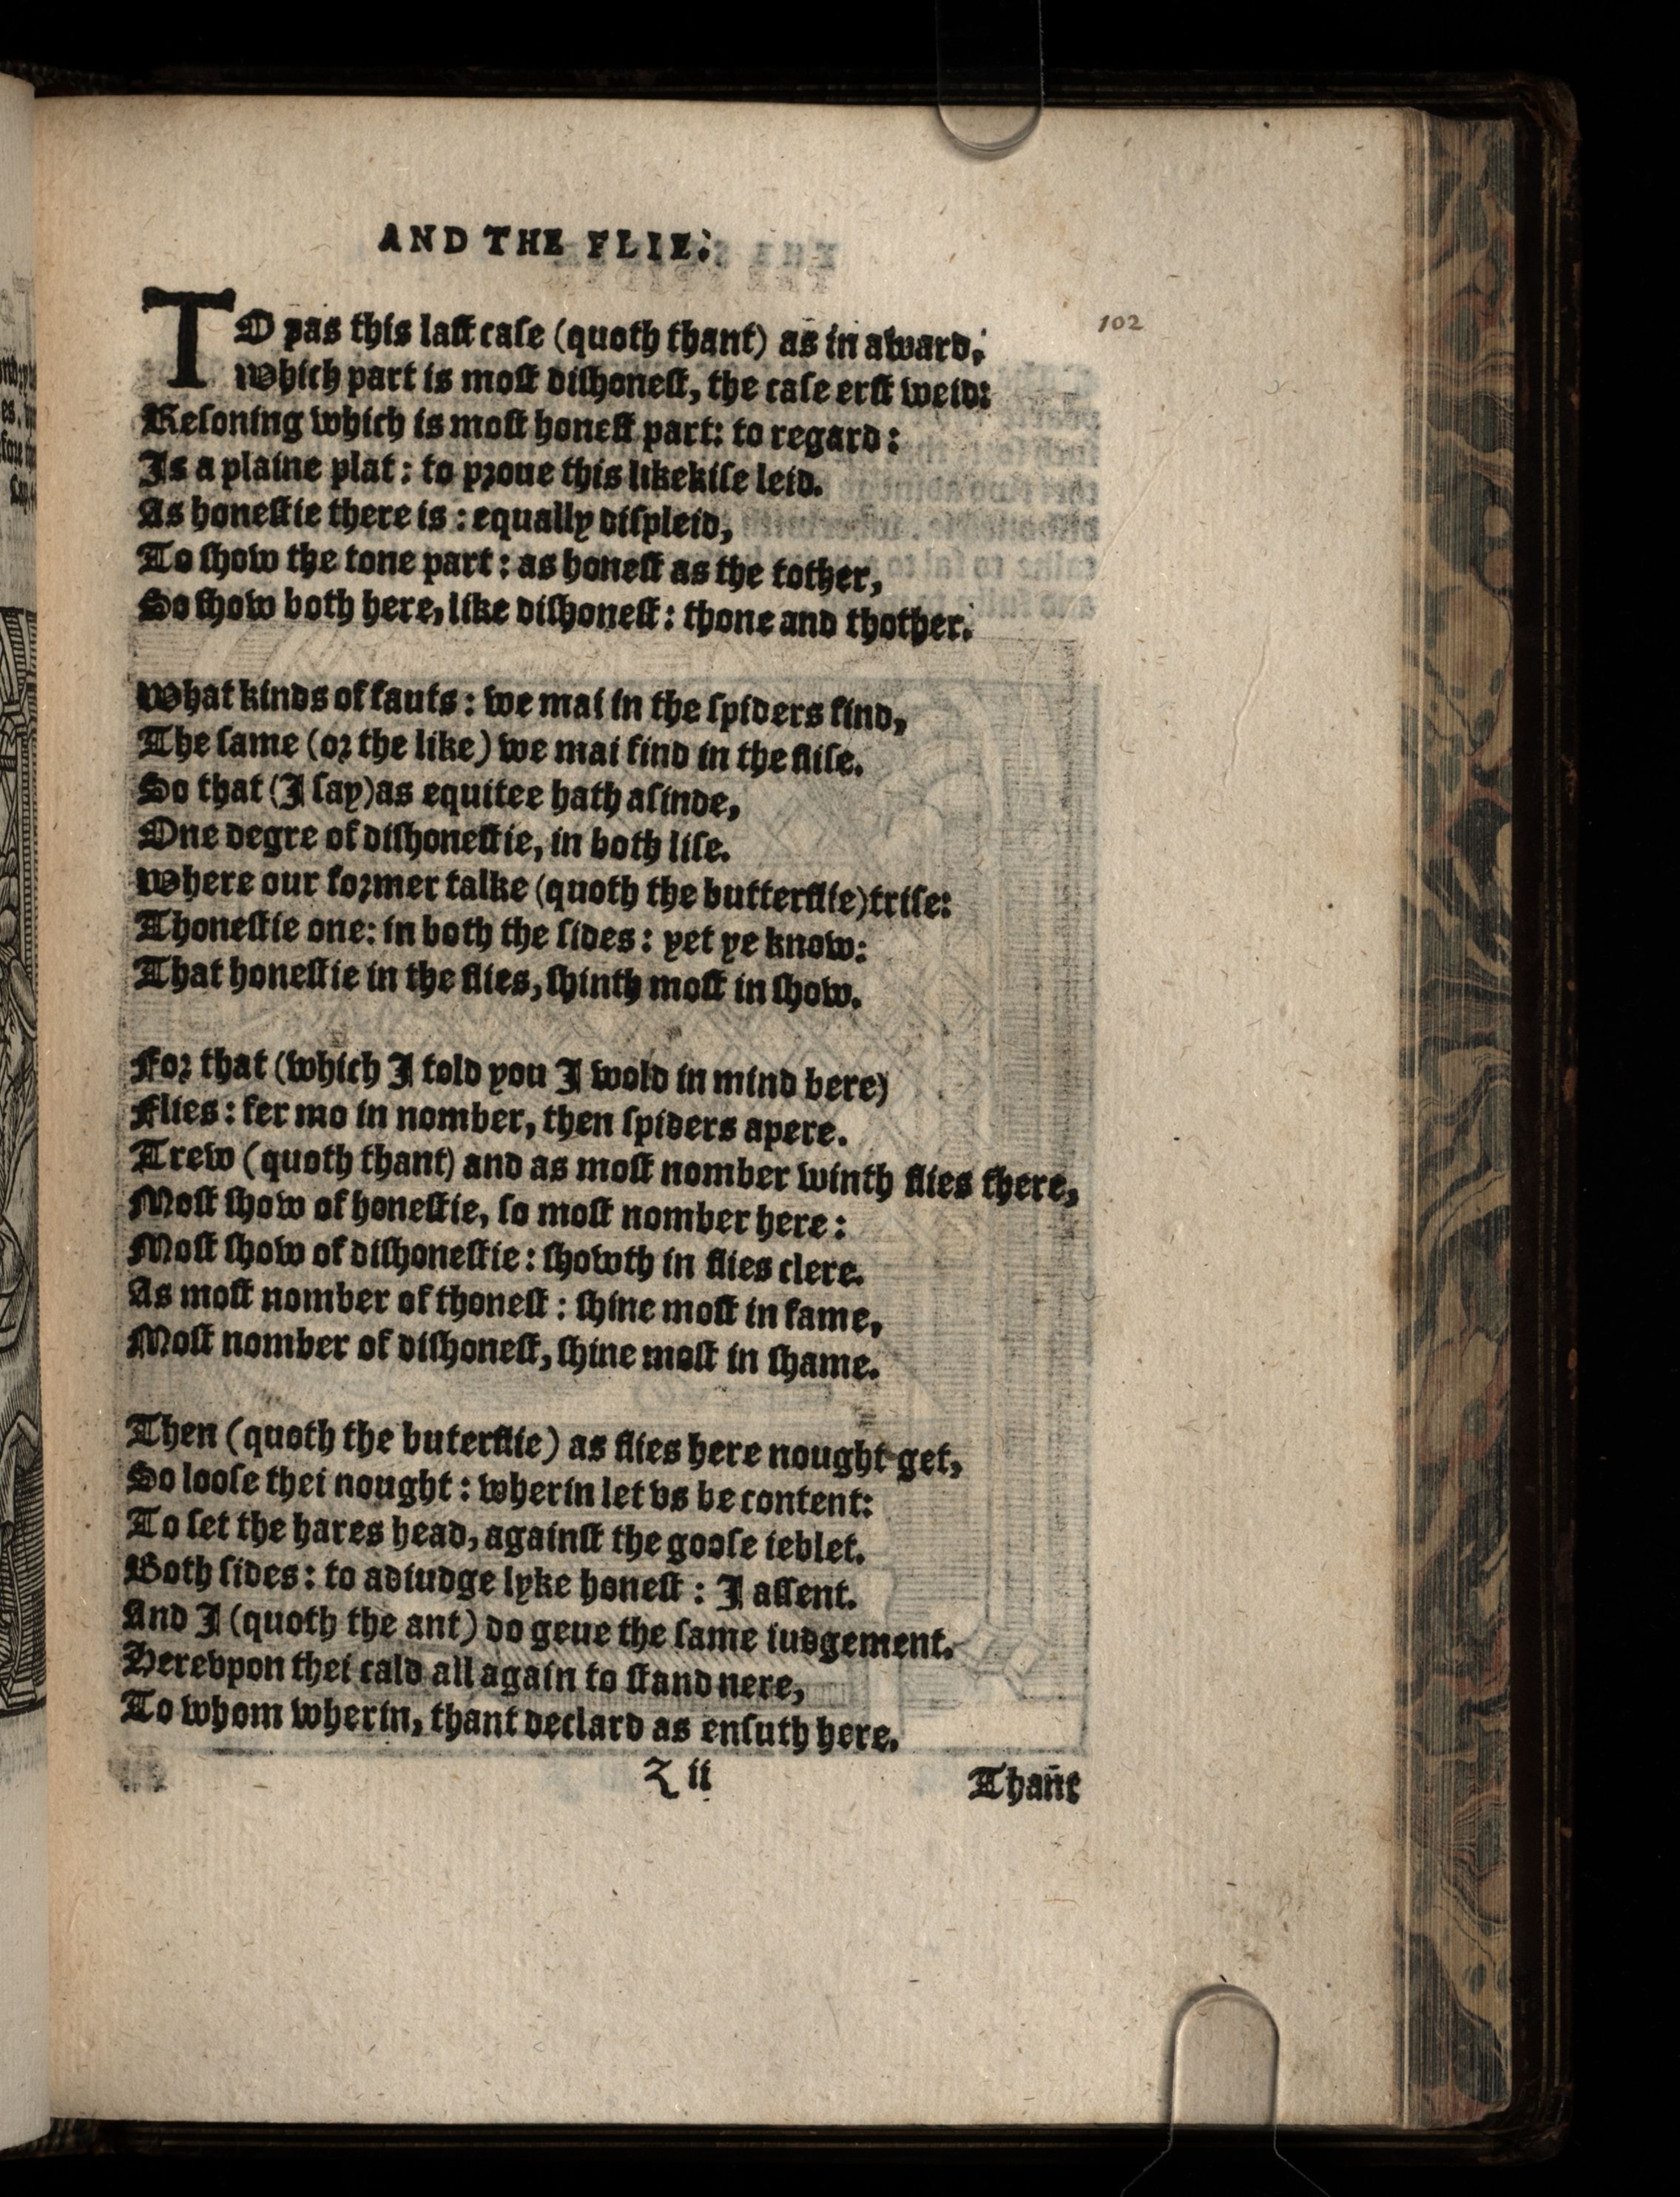 AND THE FLIE:
102
TO pas this laſt caſe (quoth thant) as in award,
Which part is moſt diſhoneſt, the caſe erſt weid:
Reſoning which is moſt honeſt part: to regard:
Is a plaine plat: to proue this likekiſe leid.
As honeſtie there is: equally diſpleid,
To ſhow the tone part: as honeſt as the tother,
So ſhow both here, like diſhoneſt: thone and thother.
What kinds of fauts: we mai in the ſpiders find,
The ſame (or the like) we mai find in the fliſe.
So that (I ſay) as equitee hath aſinde,
One degre of diſhoneſtie, in both liſe.
Where our former talke (quoth the butterflie) triſe:
Thoneſtie one: in both the ſides: yet ye know:
That honeſtie in the flies, ſhinth moſt in ſhow.
For that (which I told you I wold in mind bere)
Flies: fer mo in nomber, then ſpiders apere.
Trew (quoth thant) and as moſt nomber winth flies there,
Moſt ſhow of honeſtie, ſo moſt nomber here:
Moſt ſhow of diſhoneſtie: ſhowth in flies clere.
As moſt nomber of thoneſt: ſhine moſt in fame,
Moſt nomber of diſhoneſt, ſhine moſt in ſhame.
Then (quoth the buterflie) as flies here nought get,
So looſe thei nought: wherin let vs be content:
To ſet the hares head, againſt the gooſe ieblet.
Both ſides: to adiudge lyke honeſt: I aſſent.
And I (quoth the ant) do geue the ſame iudgement.
Herevpon thei cald all again to ſtand nere,
To whom wherin, thant declard as enſuth here.
Z ii
Thañt